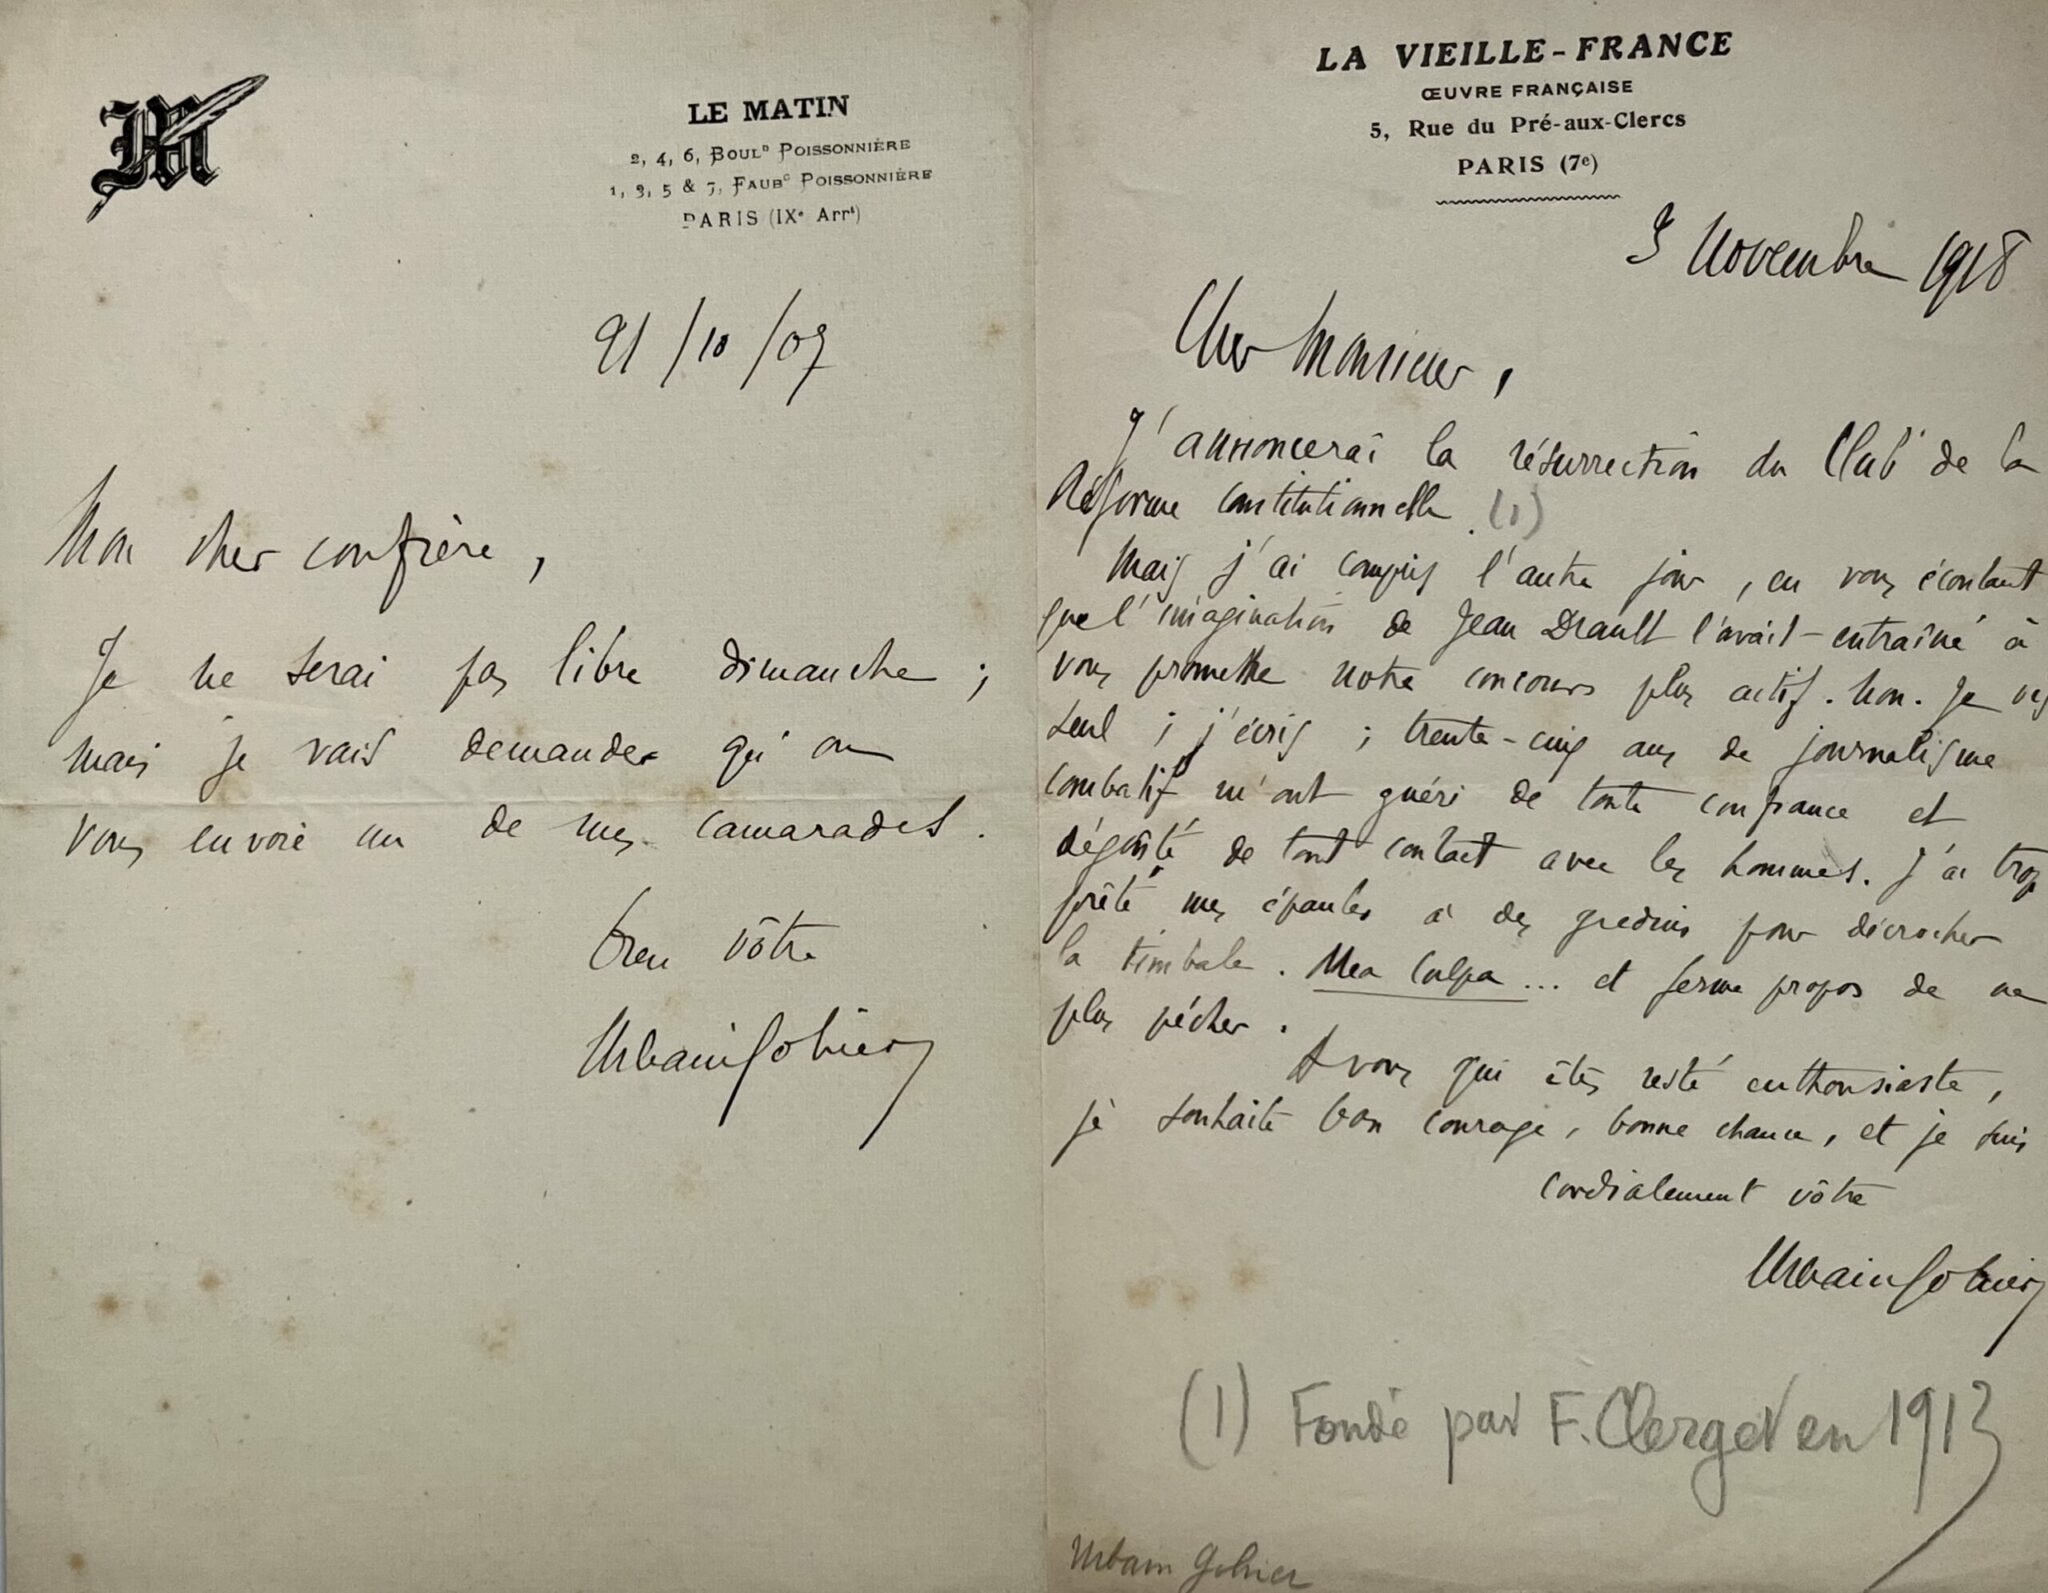 M
LE MATIN
2, 4, 6, Boulᴰ Poissonnière
1, 3, 5 & 7, Faubᶜ Poissonnière
PARIS (IXᵉ Arrᵗ)
21/10/07
Mon cher confrère,
Je ne serai pas libre dimanche ;
mais je vais demander qu'on
vous envoie un de mes camarades.
bien vôtre
Urbain Gohier
LA VIEILLE-FRANCE
ŒUVRE FRANÇAISE
5, Rue du Pré-aux-Clercs
PARIS (7ᵉ)
3 Novembre 1918
Cher Monsieur,
J'annoncerai la résurrection du Club de la
Réforme Constitutionnelle. (1)
Mais j'ai compris l'autre jour, en vous écoutant
que l'imagination de Jean Drault l'avait entraîné à
vous promettre notre concours plus actif. Non. Je vis
seul ; j'écris ; trente-cinq ans de journalisme
combatif m'ont guéri de toute confiance et
dégoûté de tout contact avec les hommes. J'ai trop
prêté mes épaules à des gredins pour décrocher
la timbale. Mea culpa... et ferme propos de ne
plus pécher.
A vous qui êtes resté enthousiaste,
je souhaite bon courage, bonne chance, et je suis
cordialement vôtre
Urbain Gohier
(1) Fondé par F. Clerget en 1913
Urbain Gohier